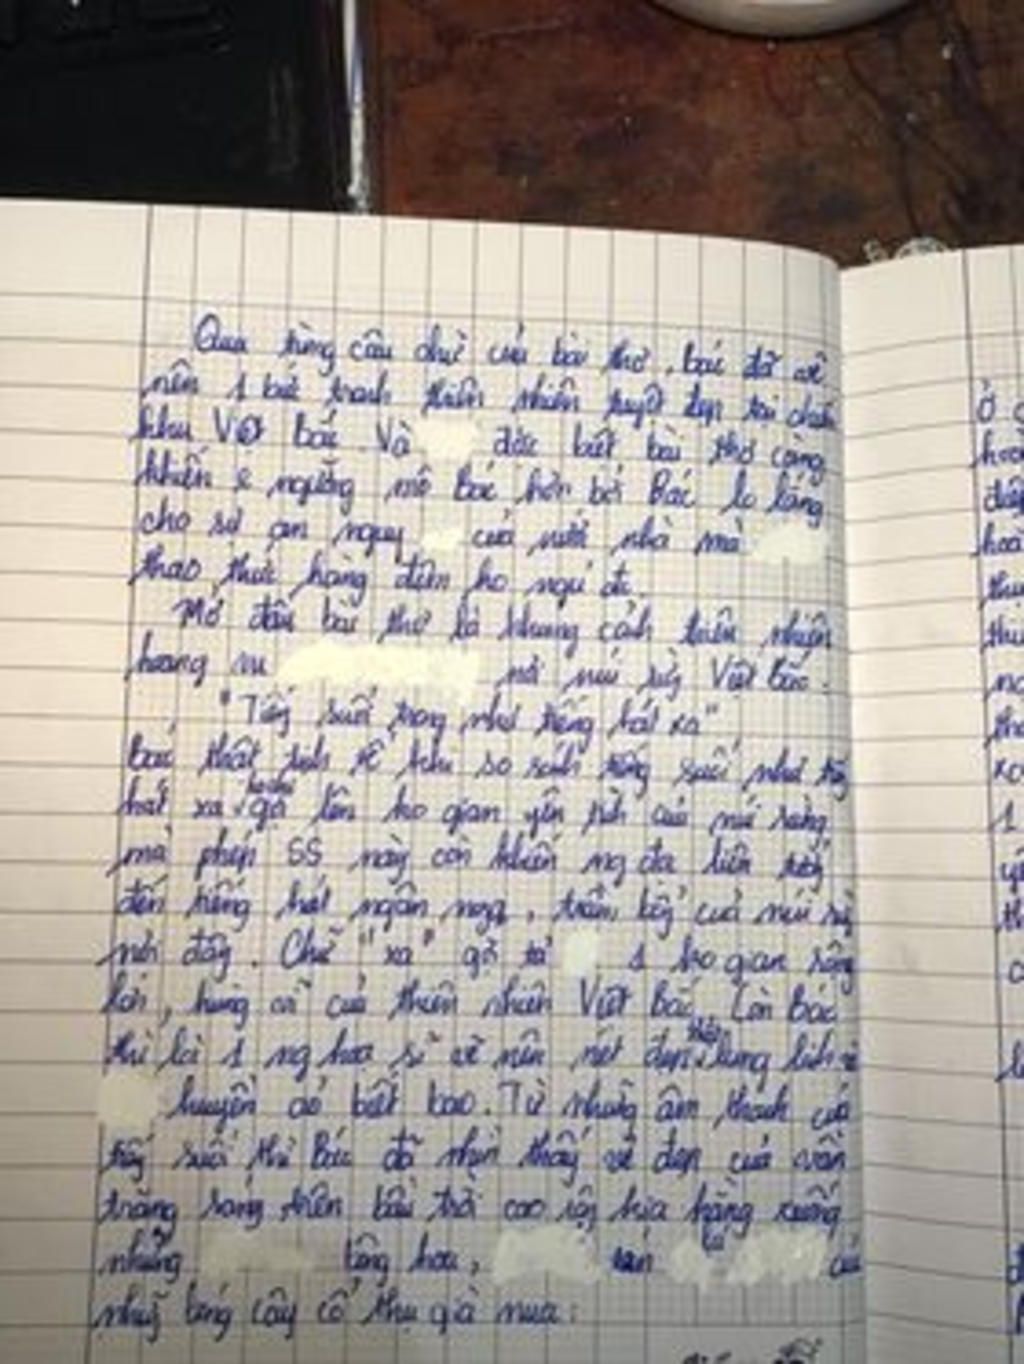 Qua từng câu chữ của bài thơ, bác đã vẽ
nên 1 bức tranh thiên nhiên tuyệt đẹp tại chiến
khu Việt bắc. Và đặc biệt bài thơ càng
khiến e ngưỡng mộ Bác hơn bởi Bác lo lắng
cho sự an nguy của nước nhà mà
thao thức hàng đêm ko ngủ đc.
Mở đầu bài thơ là khung cảnh thiên nhiên
hoang vu nơi núi rừng Việt Bắc.
"Tiếng suối trong như tiếng hát xa"
bác thật tinh tế khi so sánh tiếng suối như tiếng
hát xa, gợi lên ko gian yên tĩnh của núi rừng
mà phép SS này còn khiến ng đọc liên tưởng
đến tiếng hát ngân nga, trầm bổng của núi rừng
nơi đây. Chữ "xa" gợi tả 1 ko gian rộng
lớn, hùng vĩ của thiên nhiên Việt Bắc. Còn Bác
thì lại 1 ng hoạ sĩ vẽ nên nét đẹp lung linh
huyền ảo biết bao. Từ những âm thanh của
tiếng suối thì Bác đã nhìn thấy vẻ đẹp của vầng
trăng sáng trên bầu trời cao rộng hằng xuống
những bông hoa, tán của
những bóng cây cổ thụ già nua: